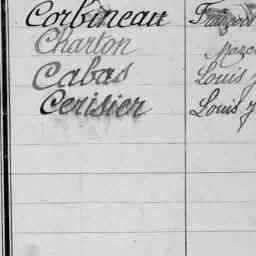 Corbineau François
Charton
Cabas Louis J
Cerisier Louis J